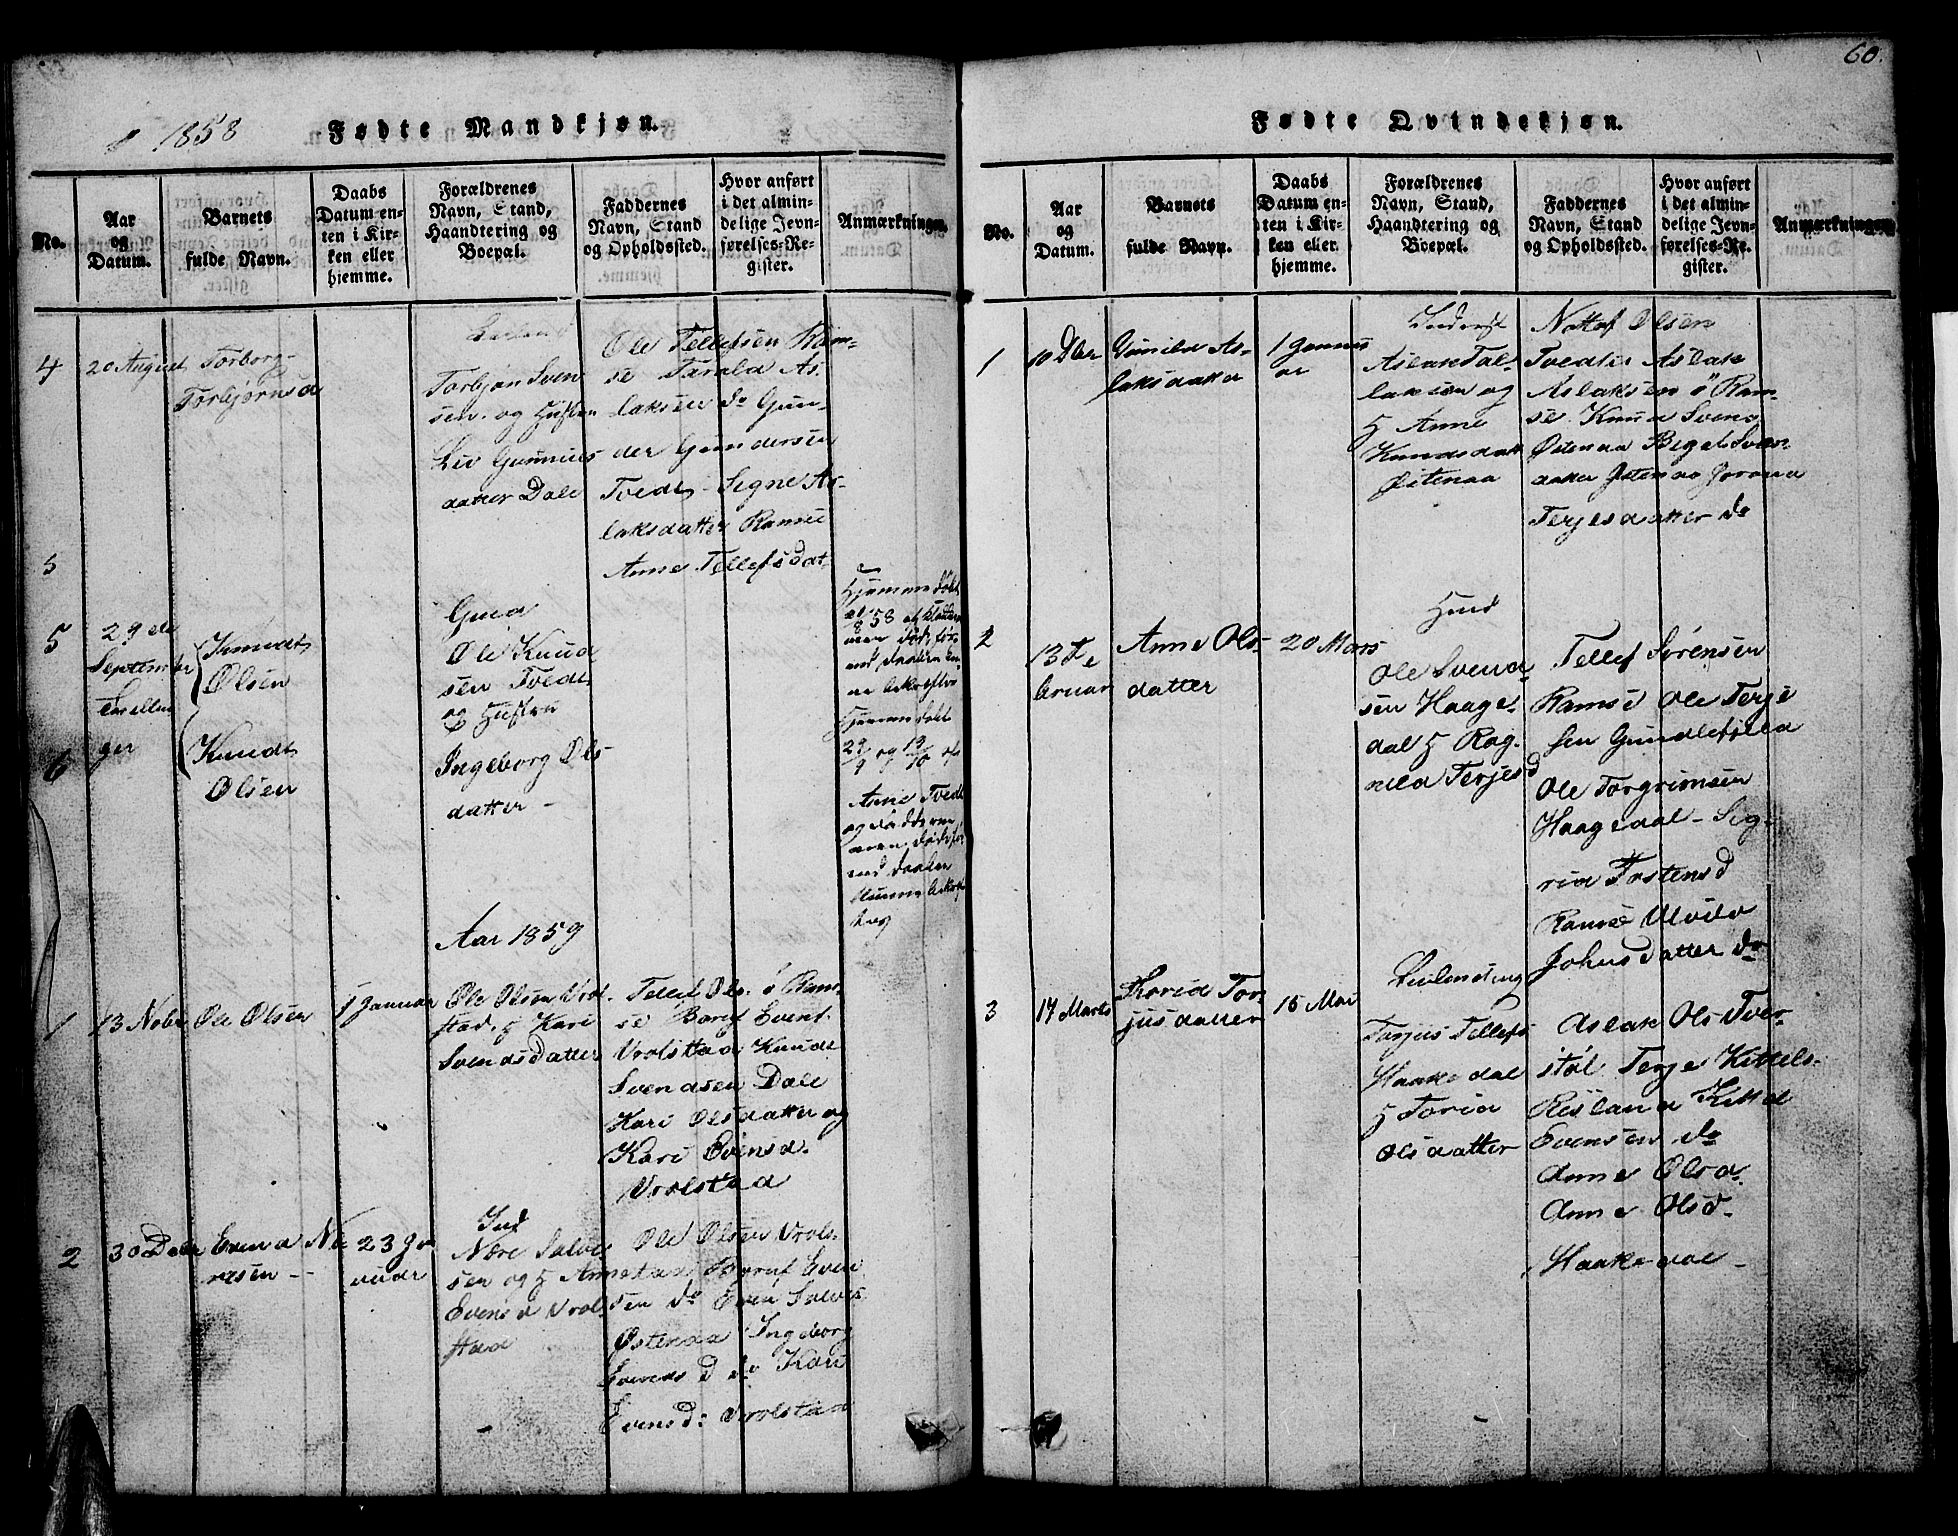 60.
1858
Fødte Mandkjøn.
No.
Aar
og
Datum.
Barnets
fulde Navn.
Daabs
Datum en-
ten i Kir-
ken eller
hjemme.
Forældrenes
Navn, Stand,
Haandtering og
Boepæl.
Faddernes
Navn, Stand
og Opholdssted.
Hvor anført
i det almin-
delige Jevn-
førelses-Re-
gister.
Anmærkninger.
4
20 August
Torborg
Torbjørnsd
Torbjøn Sven
sen og Hustru
Liv Gunnius
datter Dale
Ole Tellefsen Ram-
se Tarald As-
laksen do Gun-
der Gundersen
Tvedt - Segne As-
laksdatter Ramse
Anne Tellefsdat-
5
5
29 de
September
Tvillin
ger
Knudt
Olsen
6
Knudt
Olsen
Gmd
Ole Knud
sen Tvedt
og Hustru
Ingeborg Ols
datter -
Hjemmedøbt
29/9 og 19/10 af
Anne Tvedt
Aar 1859
1
13 Nobr
Ole Olsen
1 Januar
Ole Olsen Vrol
stad H Kari
Svendsdatter
Tellef Ols. ö Ram-
se Boruf Event
Vrolstad Knudt
Svendsen Dale
Kari Olsdatter og
Kari Evensd.
Vrolstad
2
30 Dcbr
Evend Ne
resen -
23 Ja
nuar
Ind
Nere Salves
sen og H Anne
Evensd Vrol
stad
Ole Olsen Vrol-
stad Boruf Even
sen do Even Salves
Østenaa Ingeborg
Svends D do Kari
Evensd: Vrolstad
Fødte Qvindekjøn.
No.
Aar
og
Datum.
Barnets
fulde Navn.
Daabs
Datum en-
ten i Kir-
ken eller
hjemme.
Forældrenes
Navn, Stand,
Haandtering og
Boepæl.
Faddernes
Navn, Stand
og Opholdssted.
Hvor anført
i det almin-
delige Jevn-
førelses-Re-
gister.
Anmærkninger.
1
10 Dbr
Gunild As-
laksdatter
1 Janus
ar
Inderst
Aslak Tal-
laksen og
H Anne
Knudsdatt
Østenaa
Nottof Olsen
Tvedten Aslak
Aslaksen ö Ram-
se Knud Svend
Østenaa Birgit Sven-
datter Østenaa Jorand
Terjesdatter do
2
13 Fe
bruar
Anne Ols-
datter
20 Mars
Hmd
Ole Svend
sen Haage-
dal H Rag-
nild Terjesd
Tellef Sørensen
Ramse Ole Terje
sen Gundlefjeld
Ole Torgrimsen
Haagedal - Sig-
rid Tostensd
Ramse Alvild
Johnsdatter do
3
14 Marts
Torid Tor-
jusdatter
15 Mai
Leilending
Torjus Tellefs
Haakedal
H Torid
Olsdatter
Aslak Ols Tver-
støl Terje Kittels-
Risland Kittel
Evensen do
Anne Olsd.
Anne Olsd.
Haakedal -